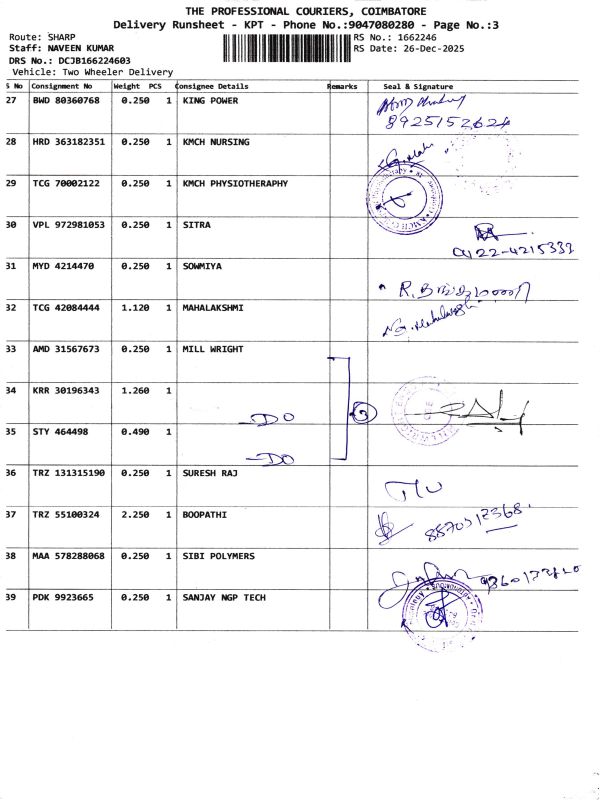 THE PROFESSIONAL COURIERS, COIMBATORE
Delivery Runsheet - KPT - Phone No.:9047080280 - Page No.:3
Route: SHARP
RS No.: 1662246
Staff: NAVEEN KUMAR
RS Date: 26-Dec-2025
DRS No.: DCJB166224603
Vehicle: Two Wheeler Delivery
S No Consignment No Weight PCS Consignee Details Remarks Seal & Signature
27 BWD 80360768 0.250 1 KING POWER
8925152624
28 HRD 363182351 0.250 1 KMCH NURSING
29 TCG 70002122 0.250 1 KMCH PHYSIOTHERAPHY
30 VPL 972981053 0.250 1 SITRA
0422-4215333
31 MYD 4214470 0.250 1 SOWMIYA
32 TCG 42084444 1.120 1 MAHALAKSHMI
33 AMD 31567673 0.250 1 MILL WRIGHT
34 KRR 30196343 1.260 1 -DO 3
35 STY 464498 0.490 1 -DO
36 TRZ 131315190 0.250 1 SURESH RAJ
37 TRZ 55100324 2.250 1 BOOPATHI
8870312368.
38 MAA 578288068 0.250 1 SIBI POLYMERS
39 PDK 9923665 0.250 1 SANJAY NGP TECH